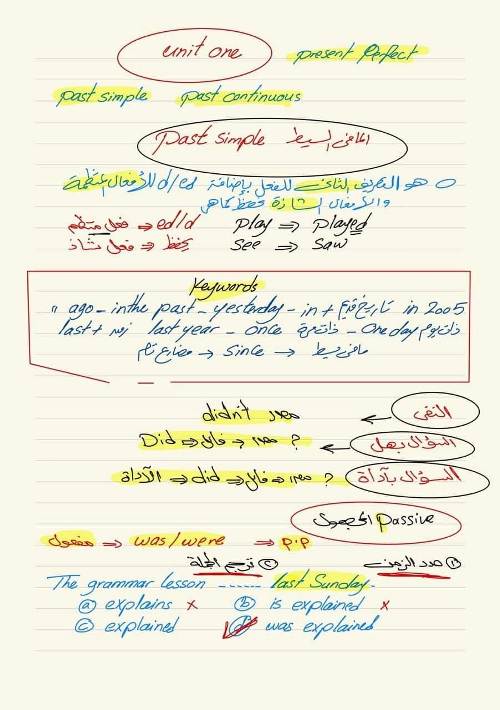 unit one
present Perfect
past simple past continuous
past simple الماضى البسيط
هو التصريف الثانى للفعل بإضافة d/ed للأفعال المنتظمة
والأفعال الشاذة تحفظ كما هى
فعل منتظم ⇒ ed/d play ⇒ played
يحفظ ⇒ فعل شاذ see ⇒ saw
Keywords
" ago - in the past - yesterday - in + تاريخ in 2005
last + زمن last year - once ذات مرة - One day ذات يوم
ماضى بسيط → since → مضارع تام
النفى ← didn't مصدر
السؤال بهل ← Did ⇒ فاعل ⇒ مصدر ?
السؤال بأداة ? مصدر ⇒ فاعل ⇒ did ⇒ الأداة
المجهول passive
مفعول ⇒ was/were ⇒ p.p
① حدد الزمن ② ترجم الجملة
The grammar lesson ...... last Sunday.
ⓐ explains x ⓑ is explained x
ⓒ explained ⓓ was explained